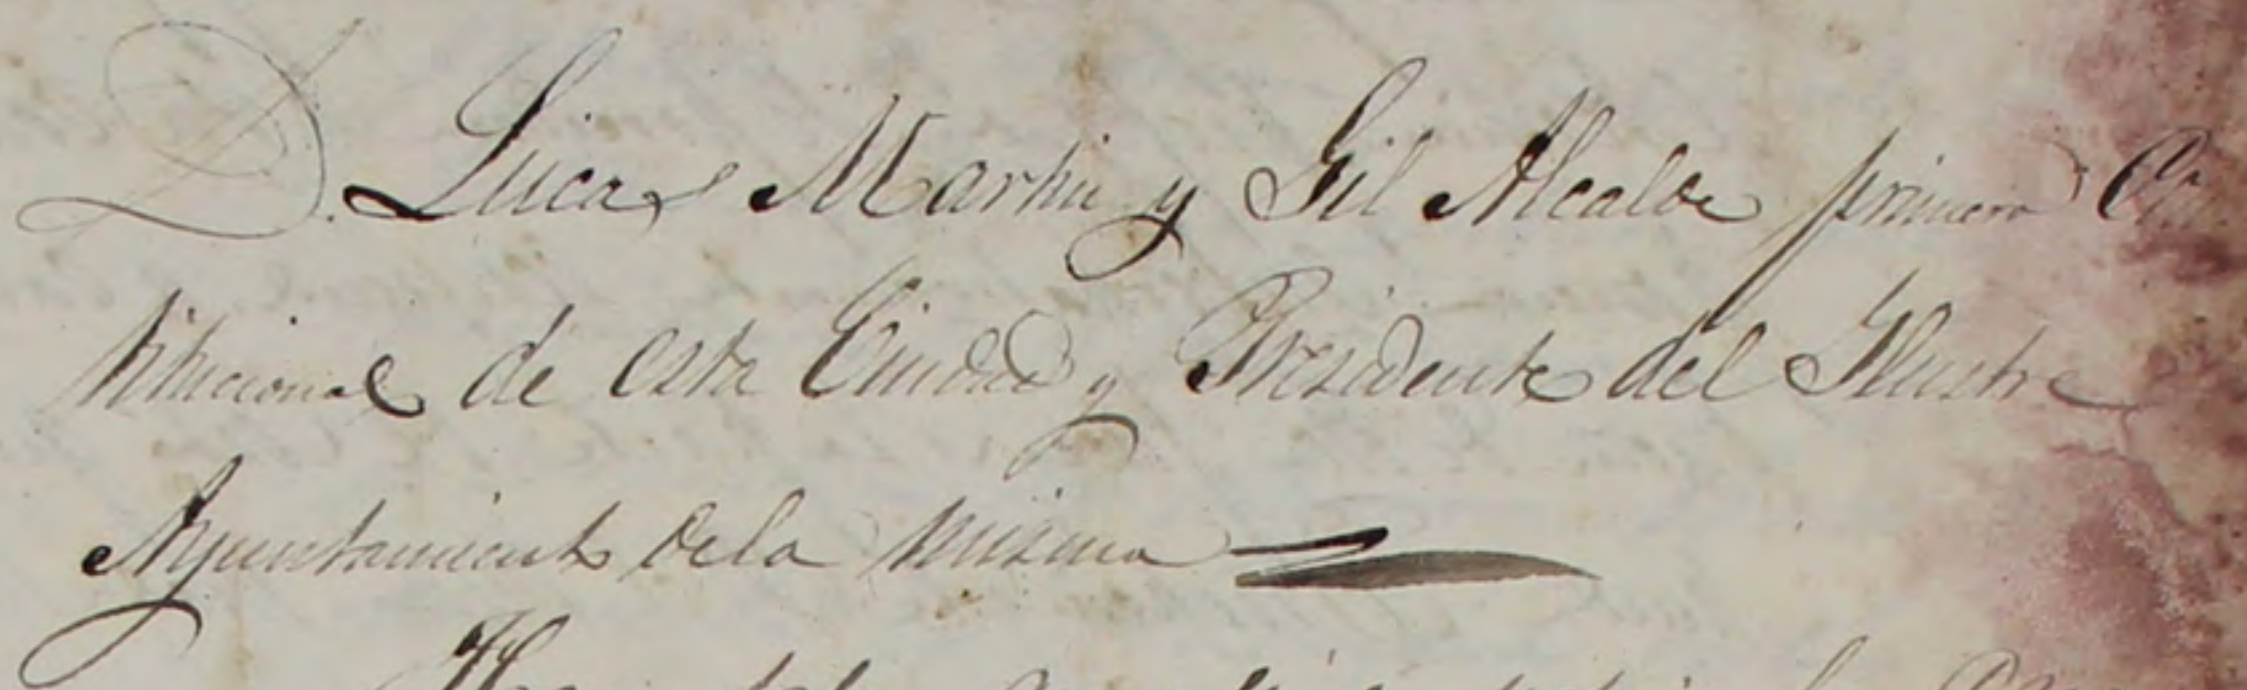 D. Lucas Martin y Gil Alcalde primero Con
titucional de esta Ciudad y Presidente del Ilustre
Ayuntamiento dela misma